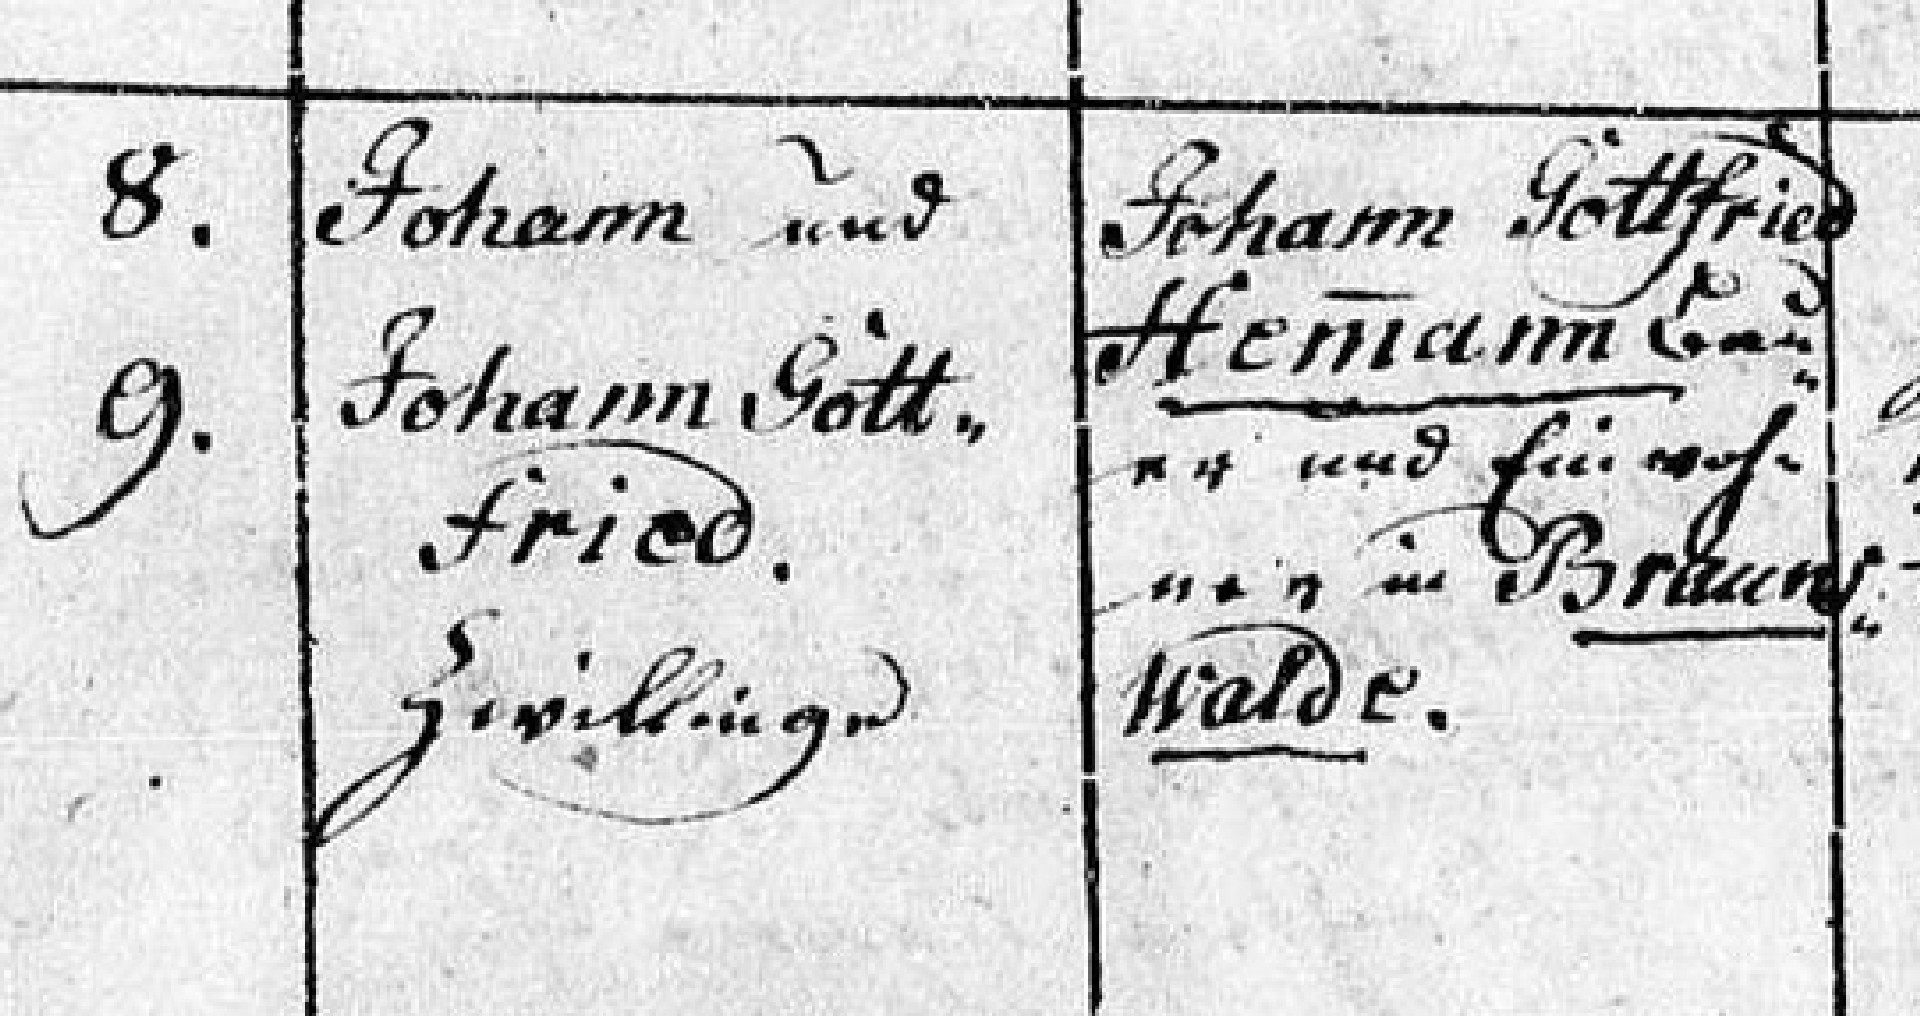 8.
Johann und
9.
Johann Gott„
fried.
Zwillinge
Johann Gottfried
Hem̄ann Bau„
er und Einwoh-
ner in Brauns„
Walde.